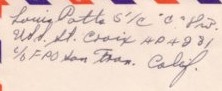 Louis Potts S/C "C" Div.
U.S.S. St. Croix APA 231
c/o FPO San Fran. Calif.